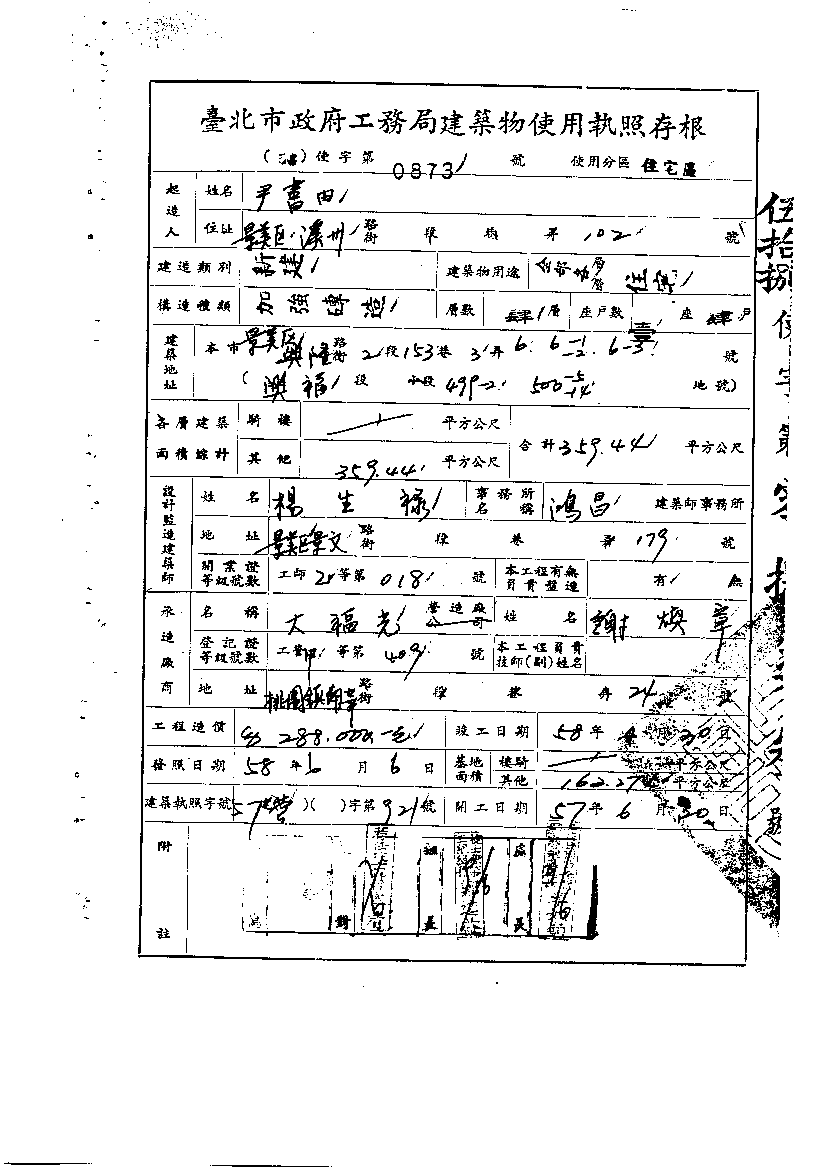 臺北市政府工務局建築物使用執照存根
使字第 0873 號 使用分區 住宅區
起造人 姓名 尹書田
住址 景美區溪州 路街 段 巷 弄 102 號
建造類別 新建 建築物用途 全部 層 住宅
構造種類 加強磚造 層數 肆 層 座戶數 壹 座 肆 戶
建築地址 本市 景美區興隆 路街 2 段 153 巷 3 弄 6. 6-1 -2. 6-3 號
(興福 段 小段 499-2 500-5 -14 地號)
各層建築面積總計 騎樓 平方公尺 合計 359.44 平方公尺
其他 359.44 平方公尺
設計監造建築師 姓名 楊生祿 事務所名稱 鴻昌 建築師事務所
地址 景美區景文 路街 段 巷 弄 179 號
開業證等級號數 工師 2 等第 018 號 本工程有無負責監造 有 無
承造廠商 名稱 大福彰 營造廠公司 姓名 謝煥章
登記證等級號數 工營甲 等第 409 號 本工程負責技師(副)姓名
地址 桃園鎮 路街 段 巷 弄 24 號
工程造價 288.000 元 竣工日期 58 年 4 月 30 日
發照日期 58 年 6 月 6 日 基地面積 樓騎 平方公尺
其他 162.27 平方公尺
建築執照字號 57 營 ( ) 字第 921 號 開工日期 57 年 6 月 20 日
附註
伍拾捌 使字第